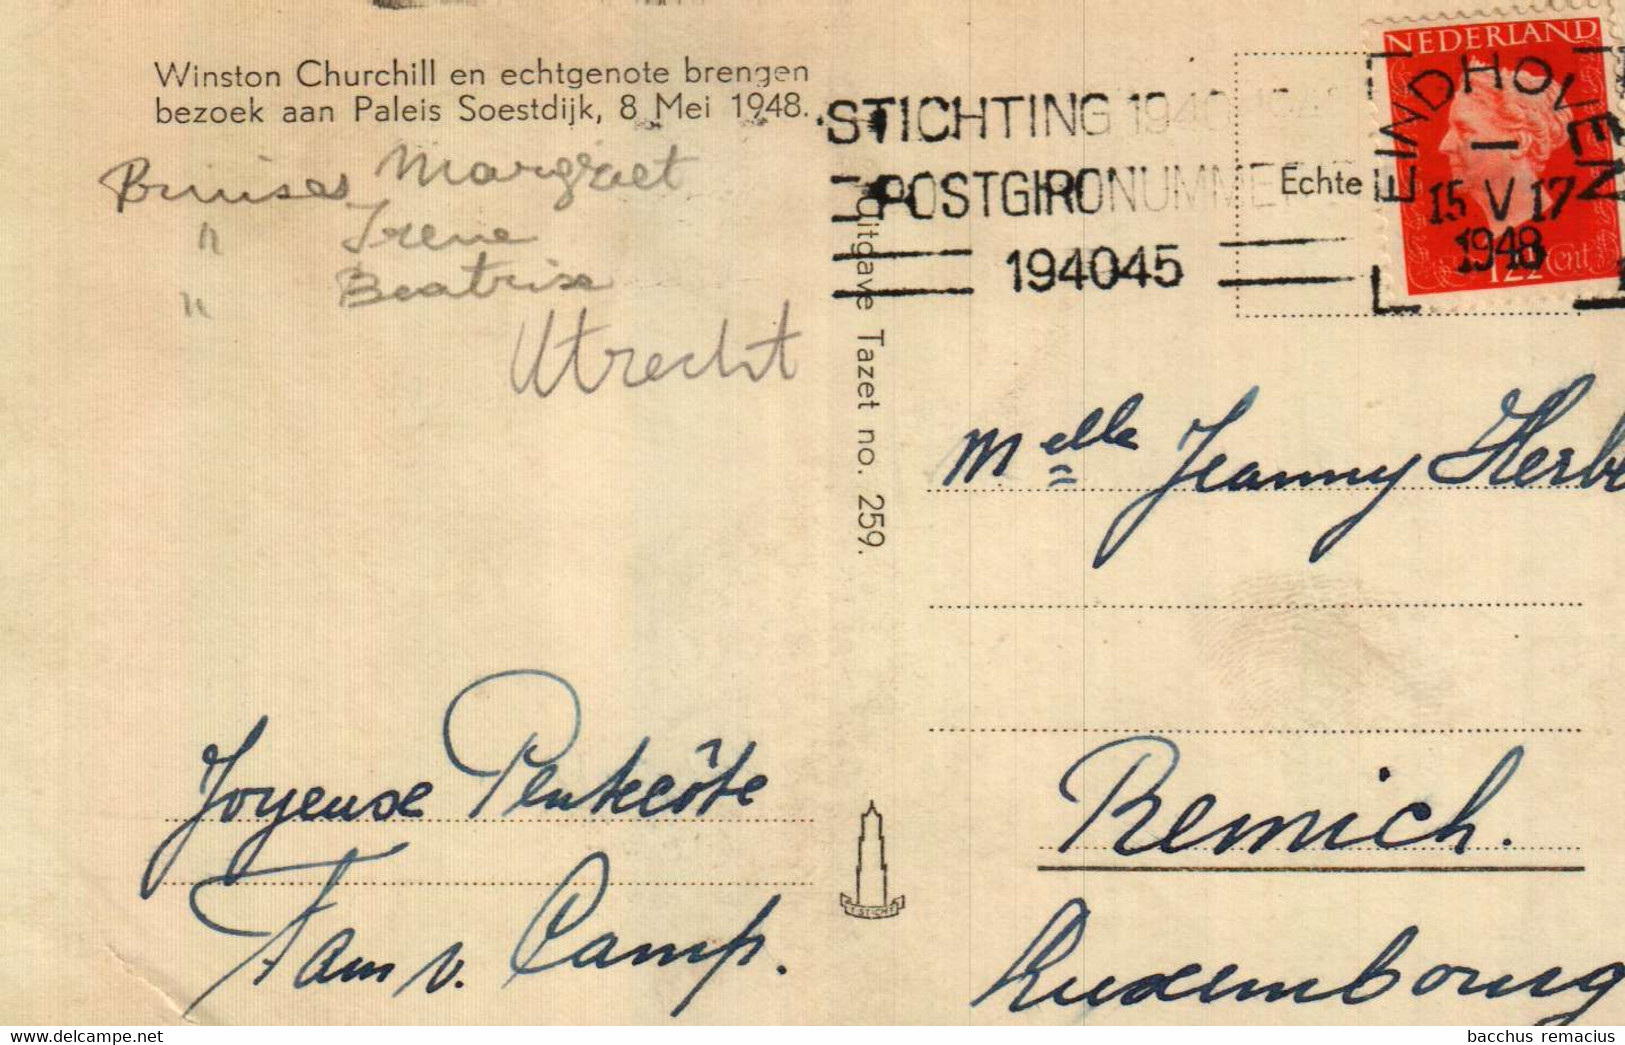 Winston Churchill en echtgenote brengen
bezoek aan Paleis Soestdijk, 8 Mei 1948.
Margriet
" Irene
" Beatrix
Utrecht
Joyeuse Pentecôte
Fam v. Camp.
Uitgave Tazet no. 259.
'T STICHT
STICHTING 1940 1945
POSTGIRONUMMER
194045
Echte
NEDERLAND
EINDHOVEN
15 V 17
1948
12½ cnt
Melle Jeanny Herbe
Remich.
Luxembourg
bacchus remacius